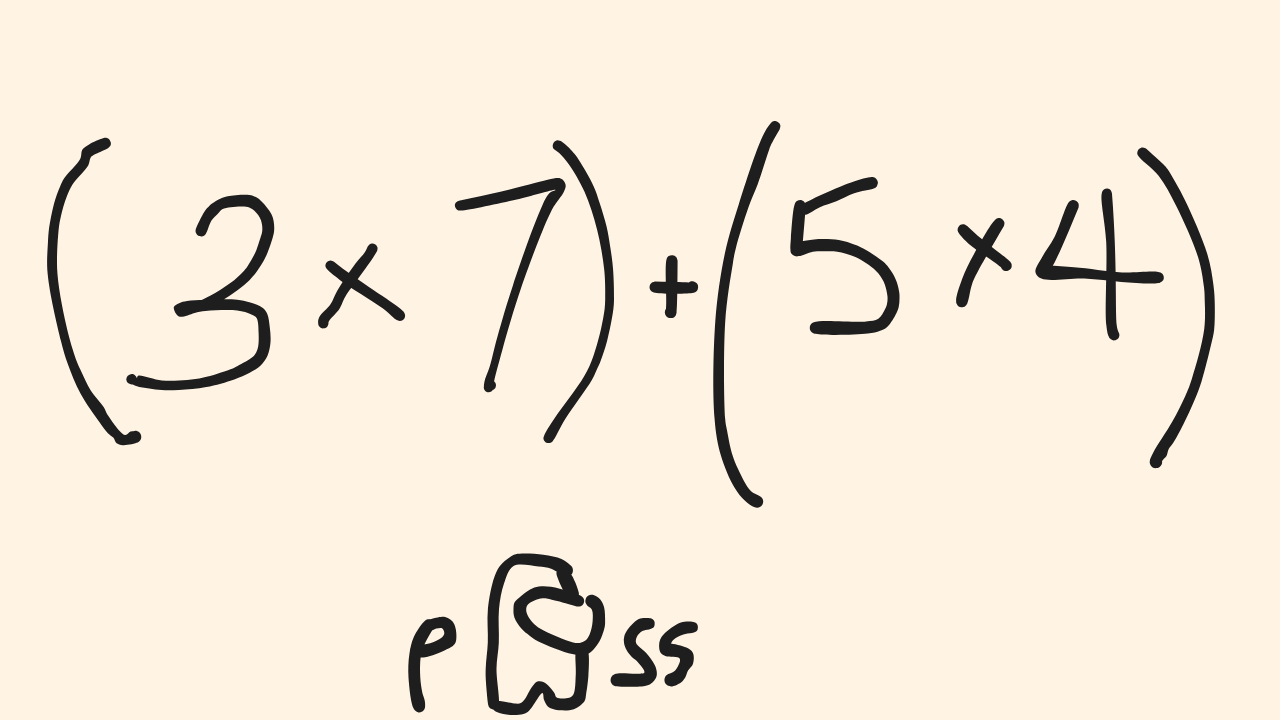 (3×7)+(5×4)
pass